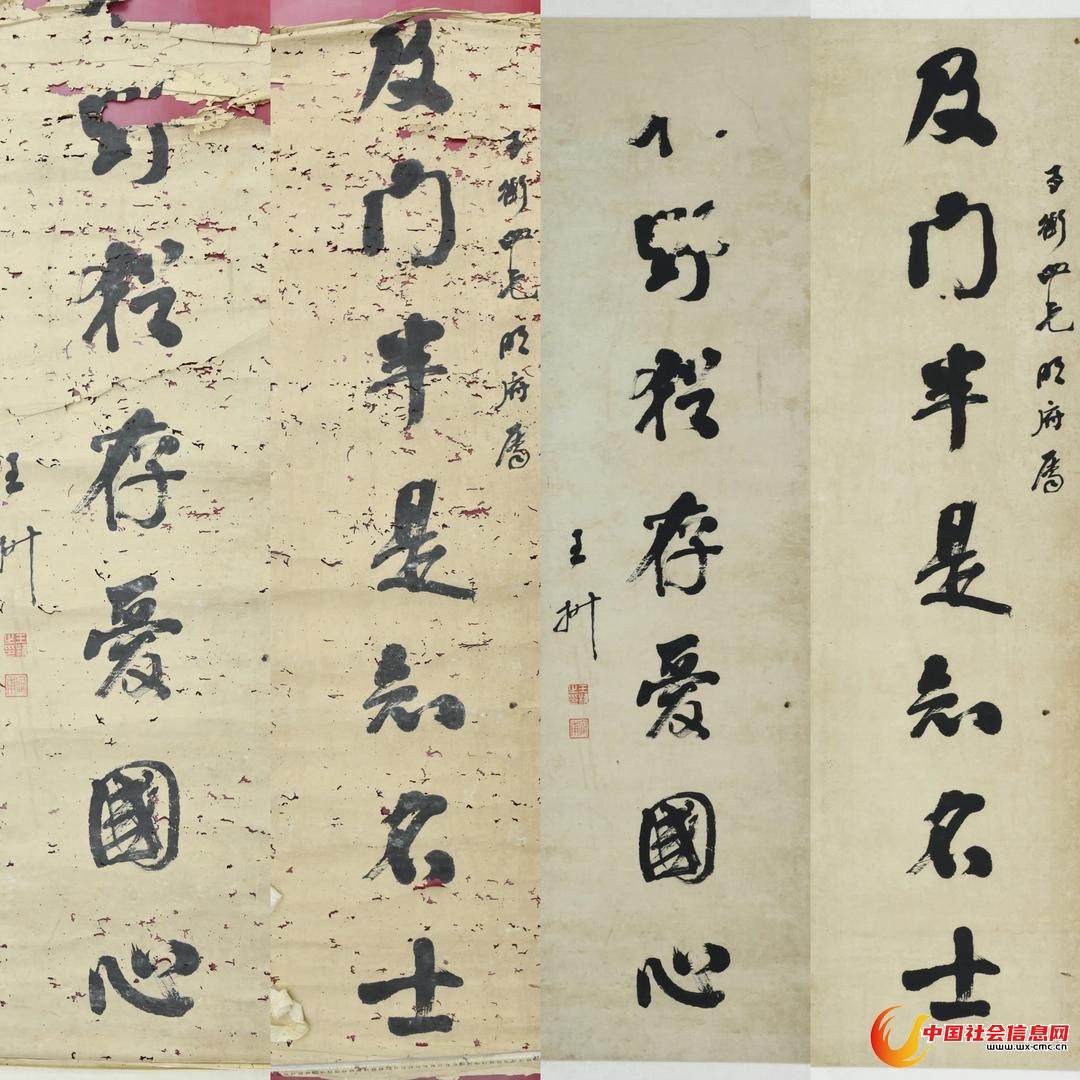 子衡四兄明府属
及门半是知名士
野猶存爱國心
王
子衡四兄明府属
及门半是知名士
野猶存爱國心
王
中国社会信息网
www.wx-cmc.cn